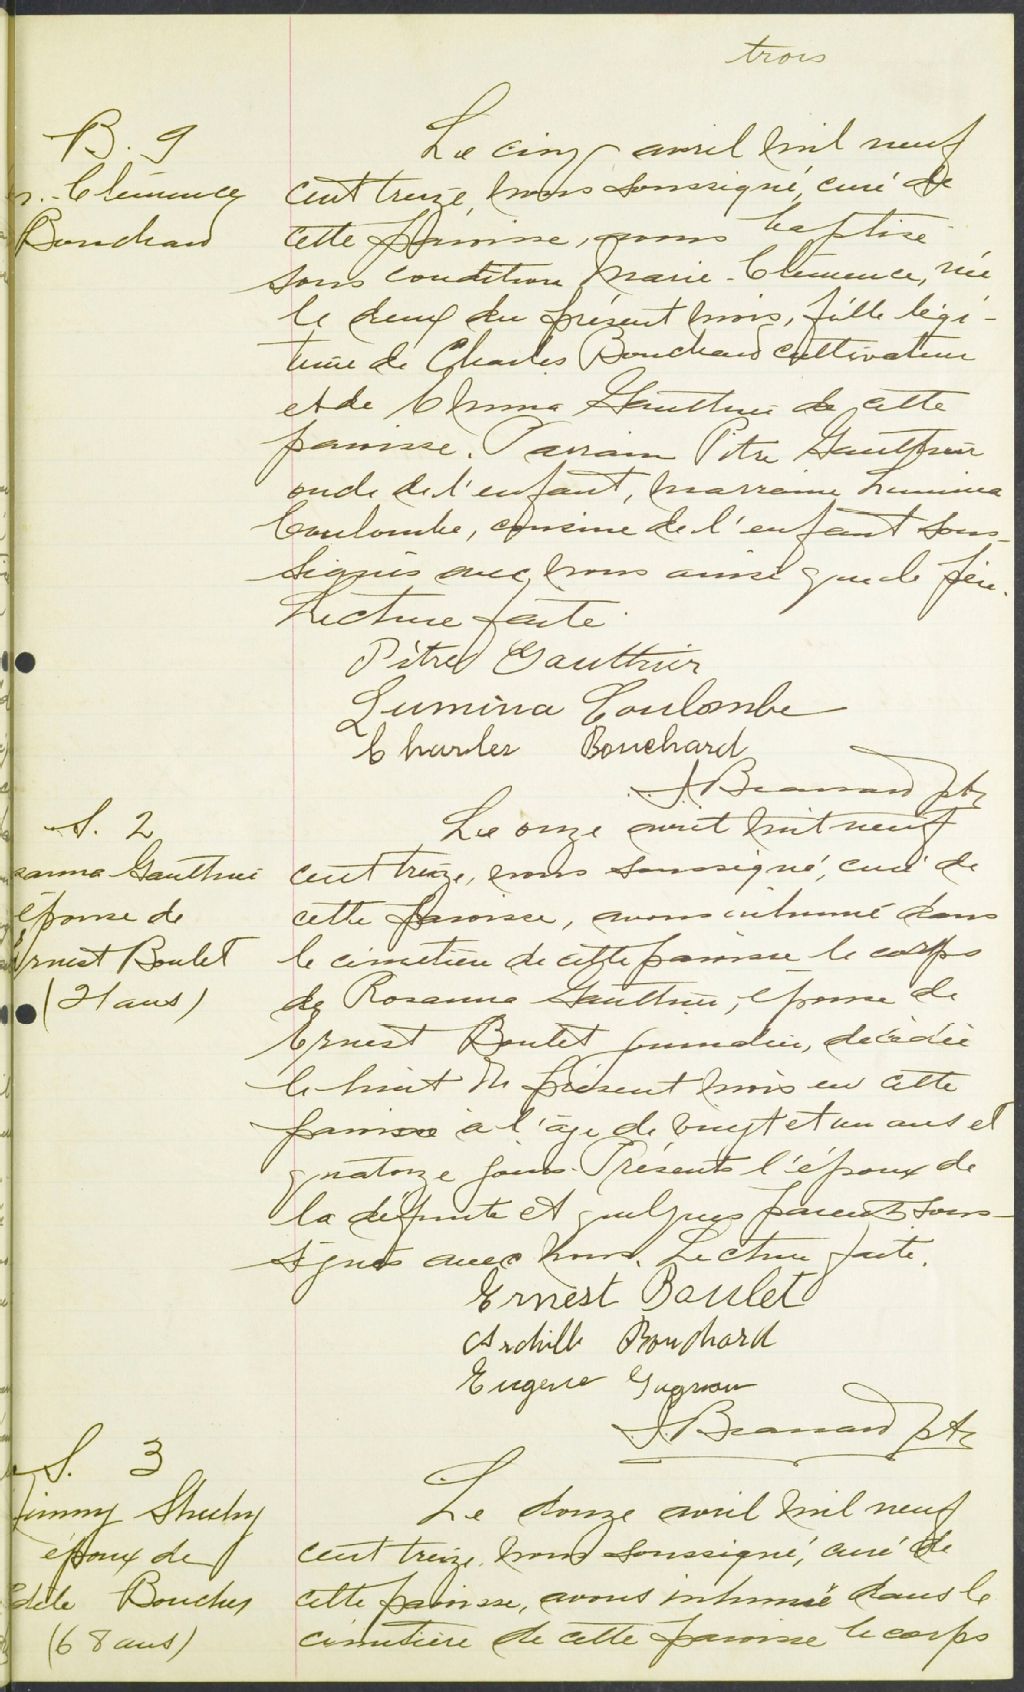 trois
B. 9
Clémence
Bouchard
Le cinq avril mil neuf
cent treize, nous soussigné, curé de
cette paroisse, avons baptisé
sous condition Marie-Clémence, née
le deux du présent mois, fille légi-
time de Charles Bouchard cultivateur
et de Emma Gauthier de cette
paroisse. Parrain Pitre Gauthier
oncle de l'enfant, marraine Lumina
Coulombe, cousine de l'enfant sous-
signés avec nous ainsi que le père.
Lecture faite.
Pitre Gauthier
Lumina Coulombe
Charles Bouchard
Ptr
S. 2
Gauthier
épouse de
Ernest Boulet
(21 ans)
Le onze avril mil neuf
cent treize, nous soussigné, curé de
cette paroisse, avons inhumé dans
le cimetière de cette paroisse le corps
de Rosanna Gauthier, épouse de
Ernest Boulet journalier, décédée
le huit du présent mois en cette
paroisse à l'âge de vingt et un ans et
quatorze jours. Présents l'époux de
la défunte et quelques parents sous-
signés avec nous. Lecture faite.
Ernest Boulet
Archille Bouchard
Eugene Gagnon
Ptr
S. 3
Jimmy Sheehy
époux de
Boucher
(68 ans)
Le douze avril mil neuf
cent treize, nous soussigné, curé de
cette paroisse, avons inhumé dans le
cimetière de cette paroisse le corps